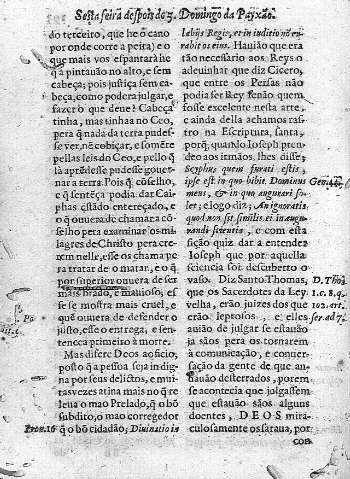 Sesta feira despois do 5. Domingo da Payxão.
do terceiro, que he o cano
por onde corre a peita) e o
que mais vos espantará he
q̃ a pintauão no alto, e sem
cabeça; pois justiça sem ca-
beça, como poderá julgar, e
fazer o que deue? Cabeça
tinha, mas tinha a no Ceo,
pera q̃ nada da terra pudes-
se ver, nẽ cobiçar, e somẽte
pellas leis do Ceo, e pello q̃
là aprẽdesse pudesse gouer-
nar a terra. Pois q̃ cõselho,
e q̃ sentẽça podia dar Cai-
phas estãdo enterreçado, e
o q̃ ouuera de chamar a cõ-
selho pera examinar os mi-
lagres de Christo pera cre-
rem nelle, esse os chama pe-
ra tratar de o matar, e o q̃
por superior ouuera de ser
mais brãdo, e mauioso, es-
se se mostra mais cruel, e
quẽ ouuera de defender o
justo, esse o entrega, e sen-
tencea primeiro à morte.
Mas disere Deos ao oficio,
posto q̃ a pessoa seja indig-
na por seus delictos, e mui-
tas vezes atina mais no q̃ re
leua o mao Prelado, q̃ o bõ
subdito, o mao corregedor
Prou. 16 q̃ o bõ cidadão; Diuinatio in
labijs Regis, et in inditio nõ er-
rabit os eius. Hauião que era
tão necessario aos Reys o
adeuinhar que diz Cicero,
que entre os Persas não
podia ser Rey senão quem
fosse excellente nesta arte,
e ainda della achamos rastro
na Escriptura, santa,
porq̃, quando Ioseph pren-
deo aos irmãos, lhes disse;
Scyphus quem furati estis,
ipse est in quo bibit Dominus
Gen. 44.
meus, & in quo augurari so-
let; e logo diz; An ignoratis
quod non sit similis ei in augu-
randi scientia, e com esta
sição quiz dar a entender
Ioseph que por aquella
sciencia soi descuberto o
vaso. Diz Santo Thomas,
D. Tho.
que os Sacerdotes da Ley
1. e. 8. q.
velha, erão juizes dos que
102. art.
erão leprosos, e elles
ser. ad 7.
auião de julgar se estauão
ja sãos pera os tornarem
à comunicação, e conuer-
sação da gente de que an-
dauão desterrados, porem
se acontecia que julgassem
que estauão sãos alguns
doentes, DEOS mira-
culosamente os saraua, por
con